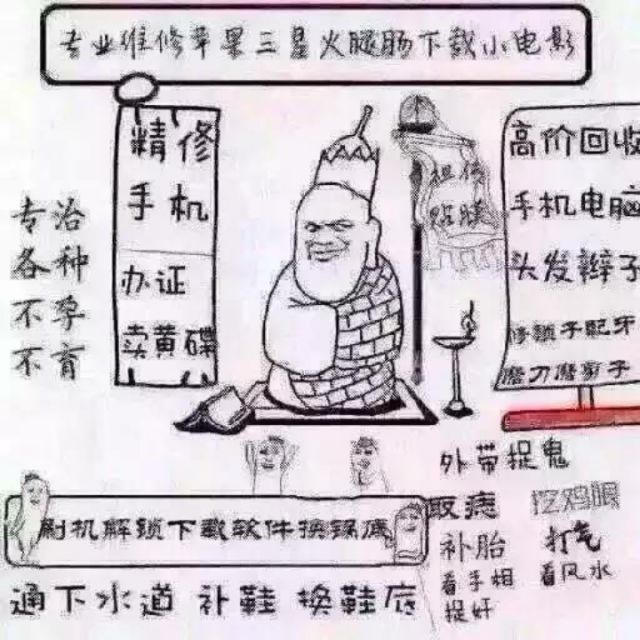 专业维修苹果三星火腿肠下载小电影
精修
手机
办证
卖黄碟
专治
各种
不孕
不育
祖传
贴膜
高价回收
手机电脑
头发辫子
修锁子配牙
磨刀磨剪子
外带捉鬼
取痣
挖鸡眼
补胎
打气
看手相
看风水
捉奸
刷机解锁下载软件换锅底
通下水道 补鞋 换鞋底